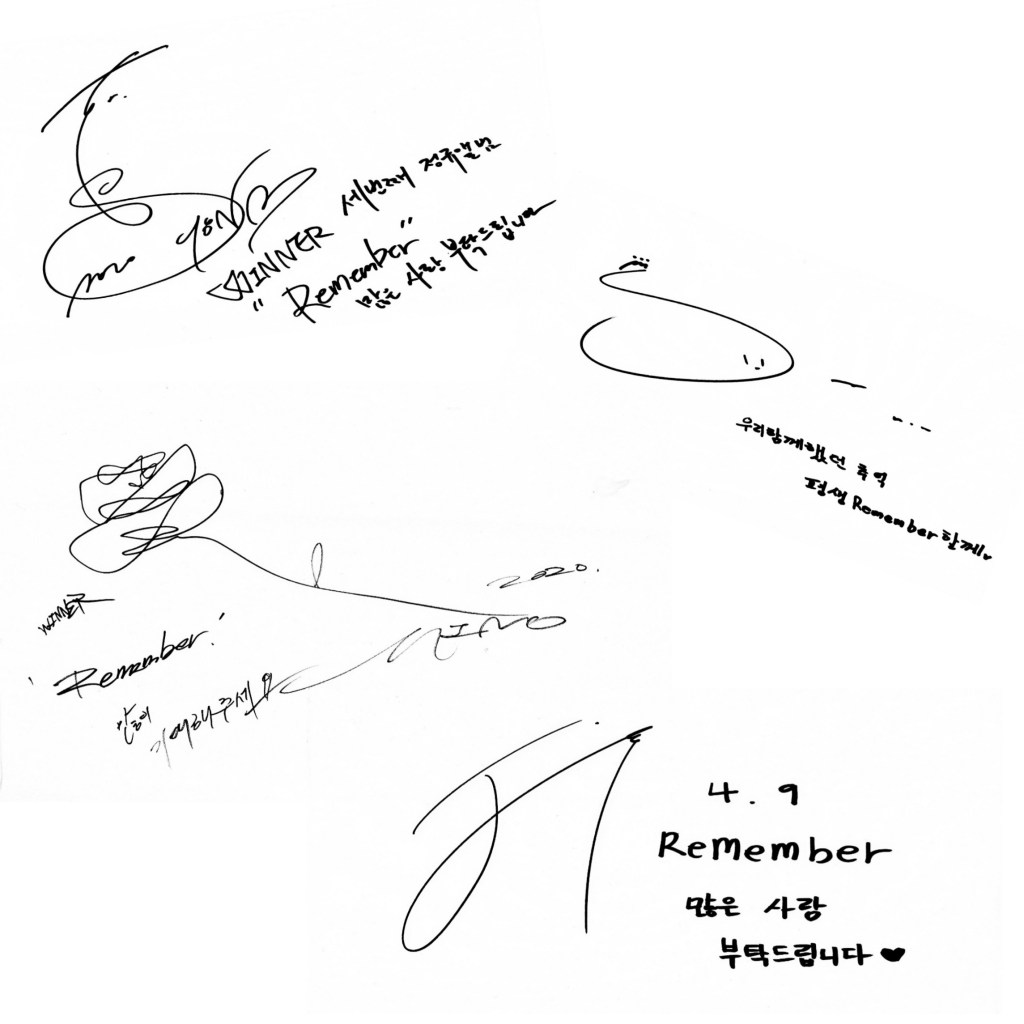 WINNER 세번째 정규앨범
"Remember"
많은 사랑 부탁드립니다
우리함께했던 추억
평생 Remember 할께
2020.
WINNER
MINO
'Remember.'
기억해주세요
4.9
Remember
많은 사랑
부탁드립니다 ♥